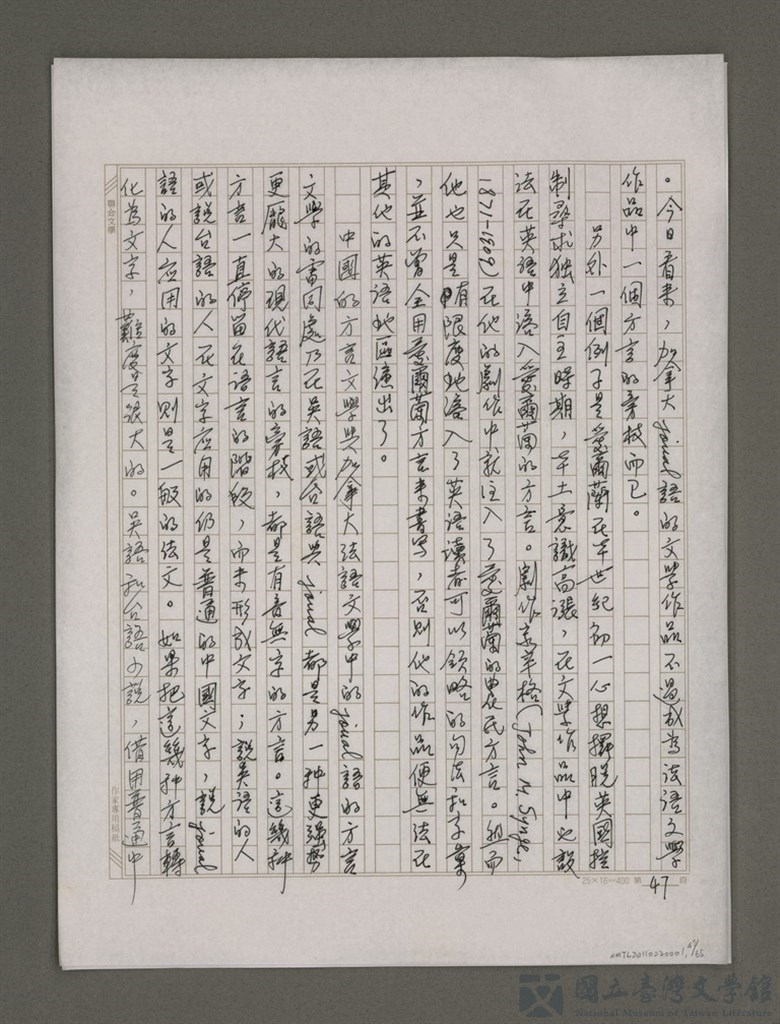 。今日看来，加拿大joual語的文學作品不過成為法語文學
作品中一個方言的旁枝而已。
另外一個例子是愛爾蘭在本世紀初一心想擺脫英國控
制尋求独立自主時期，本土意識高漲，在文學作品中也設
法在英語中溶入愛爾蘭的方言。劇作家辛格(John M. Synge,
1871-1909)在他的劇作中就注入了愛爾蘭的農民方言。然而
他也只是有限度地溶入了英语讀者可以領略的句法和字彙
，並不曾全用愛爾蘭方言来書写，否則他的作品便無法在
其他的英語地區演出了。
中國的方言文學與加拿大法語文學中的joual語的方言
文學的雷同處乃在吳語或台語與joual都是另一种更強勢
更龐大的現代語言的旁枝，都是有音無字的方言。這幾种
方言一直停留在語言的階段，而未形成文字；說吳語的人
或說台語的人在文字应用的仍是普通的中國文字，說joual
語的人应用的文字則是一般的法文。如果把這幾种方言轉
化為文字，難度是很大的。吳語和台語小說，借用普通中
聯合文學
作家專用稿紙
25×16=400 第 47 頁
NMTL20110220001, 47/65
國立臺灣文學館
National Museum of Taiwan Literature